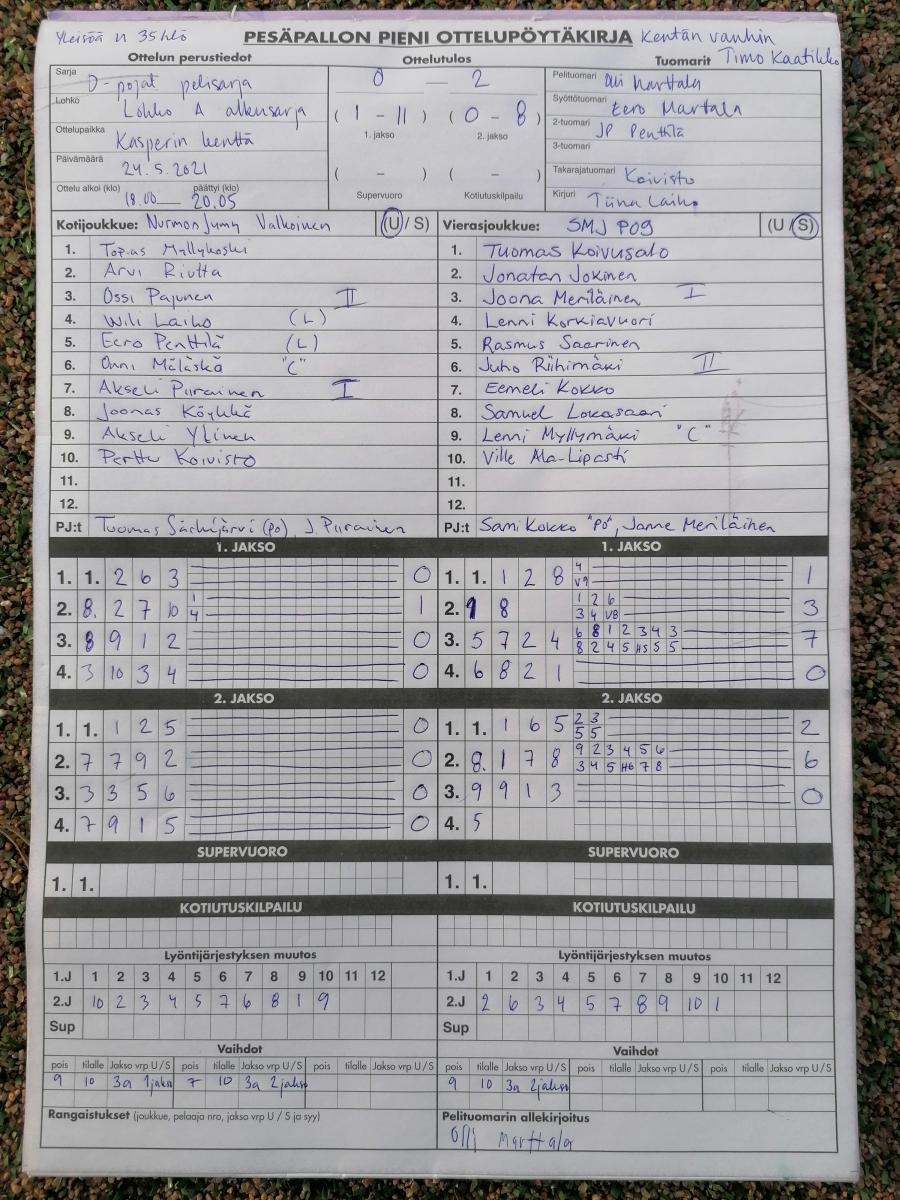 Yleisöä n 35 hlö PESÄPALLON PIENI OTTELUPÖYTÄKIRJA Kentän vanhin
Ottelun perustiedot Ottelutulos Tuomarit Timo Kaatikko
Sarja D-pojat pelisarja 0 — 2 Pelituomari Olli Marttala
Lohko Lohko A alkusarja ( 1 - 11 ) ( 0 - 8 ) Syöttötuomari Eero Martala
1. jakso 2. jakso
Ottelupaikka Kasperin kenttä 2-tuomari JP Penttilä
3-tuomari
Päivämäärä 24.5.2021 ( - ) ( - ) Takarajatuomari Koivisto
Ottelu alkoi (klo) 18.00 päättyi (klo) 20.05 Supervuoro Kotiutuskilpailu Kirjuri Tiina Laiho
Kotijoukkue: NurmonJymy Valkoinen (U / S) Vierasjoukkue: SMJ P09 (U / S)
1. Topias Myllykoski 1. Tuomas Koivusalo
2. Arvi Riutta 2. Jonatan Jokinen
3. Ossi Pajunen II 3. Joona Meriläinen I
4. Wili Laiho (L) 4. Lenni Korkiavuori
5. Eero Penttilä (L) 5. Rasmus Saarinen
6. Onni Mäläskä "C" 6. Juho Riihimäki II
7. Akseli Piirainen I 7. Eemeli Kokko
8. Joonas Köykkä 8. Samuel Lokasaari
9. Akseli Ylinen 9. Lenni Myllymäki "C"
10. Perttu Koivisto 10. Ville Ala-Lipasti
11. 11.
12. 12.
PJ:t Tuomas Särkijärvi (po), J. Piirainen PJ:t Sami Kokko "PO", Janne Meriläinen
1. JAKSO 1. JAKSO
1. 1. 2 6 3 0 1. 1. 1 2 8 4 V9 1
2. 8. 2 7 10 1 4 1 2. 9 8 1 2 6 3 4 V8 3
3. 8 9 1 2 0 3. 5 7 2 4 6 8 1 2 3 4 3 8 2 4 5 H5 5 5 7
4. 3 10 3 4 0 4. 6 8 2 1 0
2. JAKSO 2. JAKSO
1. 1. 1 2 5 0 1. 1. 1 6 5 2 3 5 5 2
2. 7 7 9 2 0 2. 8. 1 7 8 9 2 3 4 5 6 3 4 5 H6 7 8 6
3. 3 3 5 6 0 3. 9 9 1 3 0
4. 7 9 1 5 0 4. 5
SUPERVUORO SUPERVUORO
1. 1. 1. 1.
KOTIUTUSKILPAILU KOTIUTUSKILPAILU
Lyöntijärjestyksen muutos Lyöntijärjestyksen muutos
1.J 1 2 3 4 5 6 7 8 9 10 11 12 1.J 1 2 3 4 5 6 7 8 9 10 11 12
2.J 10 2 3 4 5 7 6 8 1 9 2.J 2 6 3 4 5 7 8 9 10 1
Sup Sup
Vaihdot Vaihdot
pois tilalle Jakso vrp U / S pois tilalle Jakso vrp U / S pois tilalle Jakso vrp U / S pois tilalle Jakso vrp U / S pois tilalle Jakso vrp U / S pois tilalle Jakso vrp U / S
9 10 3a 1jakso 7 10 3a 2jakso 9 10 3a 2jakso
Rangaistukset (joukkue, pelaaja nro, jakso vrp U / S ja syy) Pelituomarin allekirjoitus
Olli Marttala